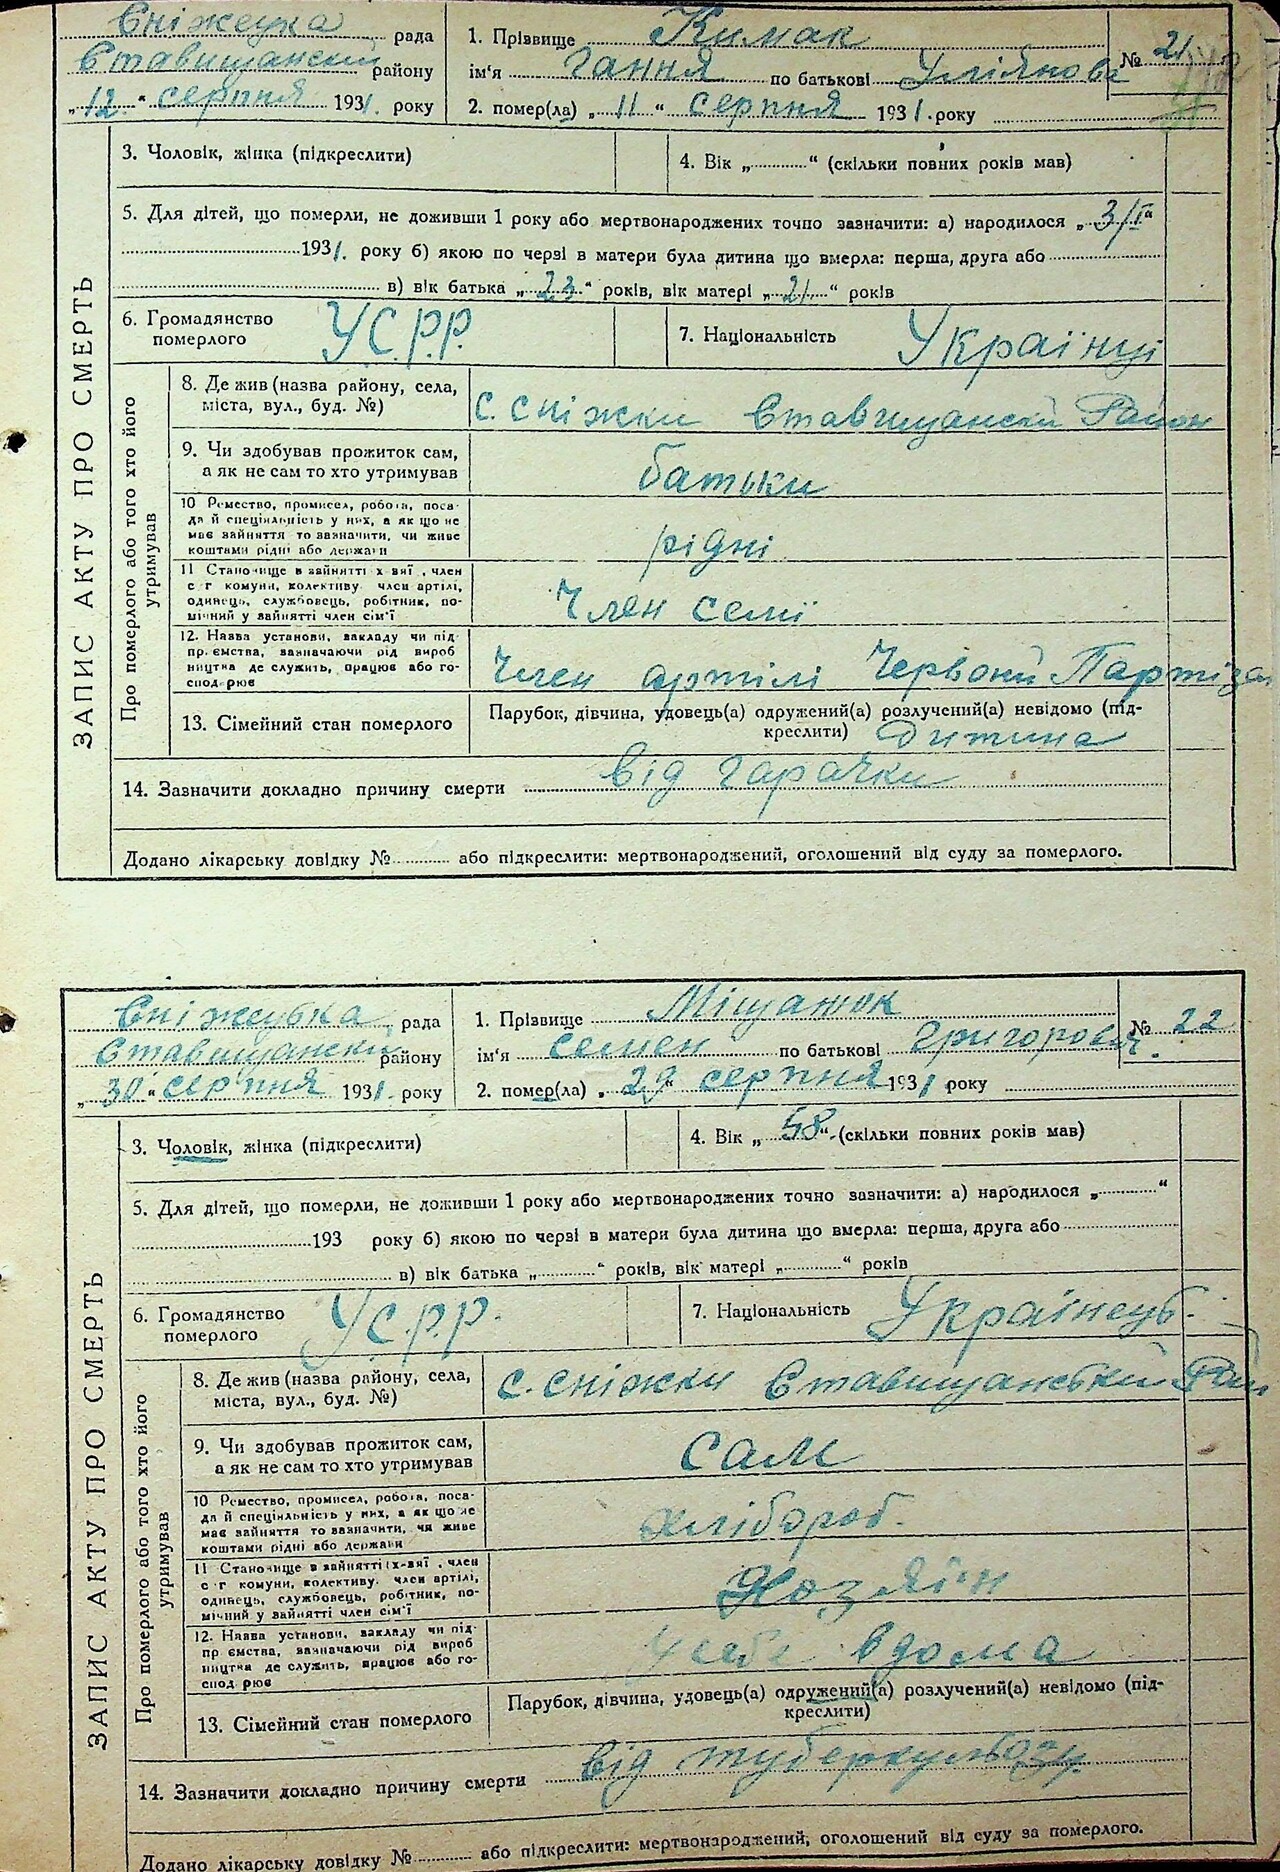 ЗАПИС АКТУ ПРО СМЕРТЬ
Сніжецка рада
Ставищанский району
„12“ серпня 1931. року
1. Прізвище Кимак
ім'я Гання по батькові Уліянова
№ 21
2. помер(ла) „11“ серпня 1931. року
3. Чоловік, жінка (підкреслити)
4. Вік „............“ (скільки повних років мав)
5. Для дітей, що померли, не доживши 1 року або мертвонароджених точно зазначити: а) народилося „3/I“
1931. року б) якою по черзі в матери була дитина що вмерла: перша, друга або
в) вік батька „23“ років, вік матері „21“ років
6. Громадянство померлого У.С.Р.Р.
7. Національність Українці
Про померлого або того хто його утримував
8. Де жив (назва району, села, міста, вул., буд. №) с. Сніжки Ставищански Район
9. Чи здобував прожиток сам, а як не сам то хто утримував батьки
10 Ремество, промисел, робота, посада й спеціяльність у них, а як що не має зайняття то зазначити, чи живе коштами рідні або держави рідні
11 Становище в зайнятті х-вяї, член с г комуни, колективу, член артілі, одинець, службовець, робітник, помічний у зайнятті член сім'ї Член семї
12. Назва установи, закладу чи підпр. ємства, зазначаючи рід виробництва де служить, працює або господ-рює Член артілі Червони Партізан
13. Сімейний стан померлого Парубок, дівчина, удовець(а) одружений(а) розлучений(а) невідомо (підкреслити) Дитина
14. Зазначити докладно причину смерти від гарачки
Додано лікарську довідку №............ або підкреслити: мертвонароджений, оголошений від суду за померлого.
ЗАПИС АКТУ ПРО СМЕРТЬ
Сніжецка рада
Ставищански району
„30“ серпня 1931. року
1. Прізвище Міщанюк
ім'я Семен по батькові Григорович.
№ 22
2. помер(ла) „29“ серпня 1931 року
3. Чоловік, жінка (підкреслити)
4. Вік „58“ (скільки повних років мав)
5. Для дітей, що померли, не доживши 1 року або мертвонароджених точно зазначити: а) народилося „............“
193 року б) якою по черзі в матери була дитина що вмерла: перша, друга або
в) вік батька „............“ років, вік матері „............“ років
6. Громадянство померлого У.С.Р.Р.
7. Національність Українець.
Про померлого або того хто його утримував
8. Де жив (назва району, села, міста, вул., буд. №) с. Сніжки Ставищанський Рай
9. Чи здобував прожиток сам, а як не сам то хто утримував сам
10 Ремество, промисел, робота, посада й спеціяльність у них, а як що не має зайняття то зазначити, чи живе коштами рідні або держави хлібороб.
11 Становище в зайнятті х-вяї, член с-г комуни, колективу, член артілі, одинець, службовець, робітник, помічний у зайнятті член сім'ї Хозяїн
12. Назва установи, закладу чи підпр ємства, зазначаючи рід виробництва де служить, працює або господ рює у себе вдома
13. Сімейний стан померлого Парубок, дівчина, удовець(а) одружений(а) розлучений(а) невідомо (підкреслити)
14. Зазначити докладно причину смерти від туберкульозу.
Додано лікарську довідку №............ або підкреслити: мертвонароджений, оголошений від суду за померлого.